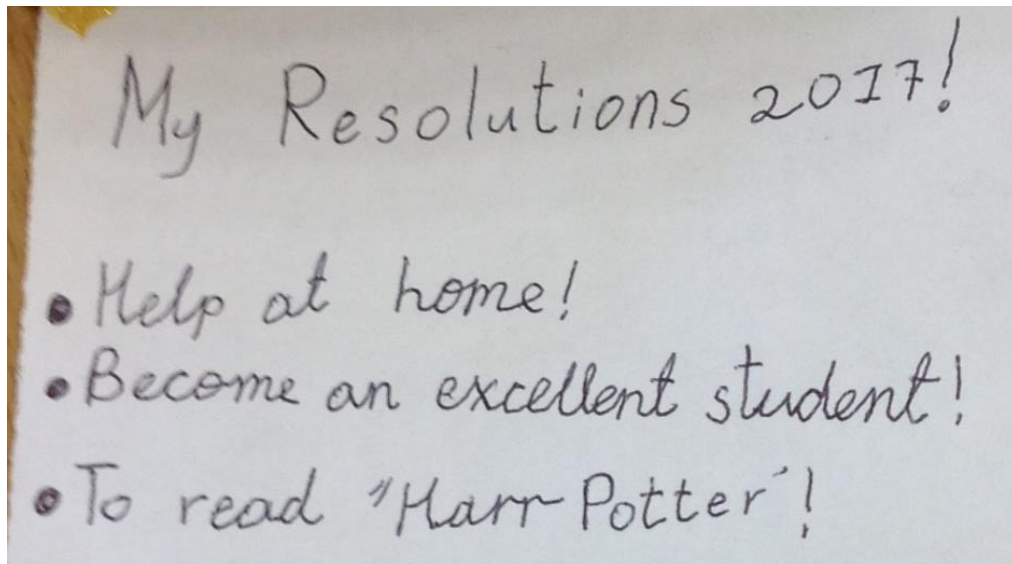 My Resolutions 2017!
• Help at home!
• Become an excellent student!
• To read "Harr Potter"!